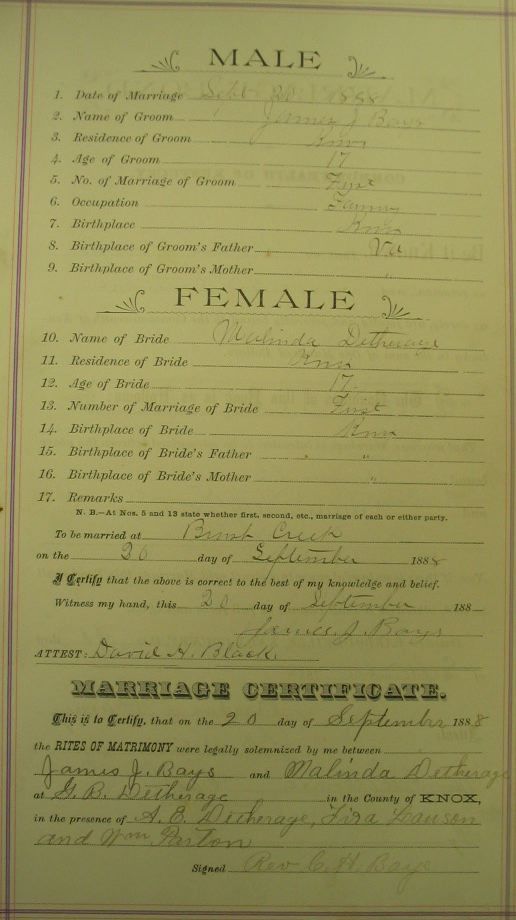 MALE
1. Date of Marriage Sept 20 1888
2. Name of Groom James J Bays
3. Residence of Groom Knox
4. Age of Groom 17
5. No. of Marriage of Groom First
6. Occupation
7. Birthplace Knox
8. Birthplace of Groom's Father Va
9. Birthplace of Groom's Mother "
FEMALE
10. Name of Bride Malinda Detherage
11. Residence of Bride Knox
12. Age of Bride 17
13. Number of Marriage of Bride First
14. Birthplace of Bride Knox
15. Birthplace of Bride's Father "
16. Birthplace of Bride's Mother "
17. Remarks
N. B.—At Nos. 5 and 13 state whether first, second, etc., marriage of each or either party.
To be married at Brush Creek
on the 20 day of September 1888
I Certify that the above is correct to the best of my knowledge and belief.
Witness my hand, this 20 day of September 188
James J. Bays
ATTEST: David H. Black
MARRIAGE CERTIFICATE.
This is to Certify, that on the 20 day of September 1888
the RITES OF MATRIMONY were legally solemnized by me between
James J. Bays and Malinda Detherage
at G. B. Detherage in the County of KNOX,
in the presence of A. B. Detherage, Lawson
and Wm Parton
Signed Rev C. H. Bays